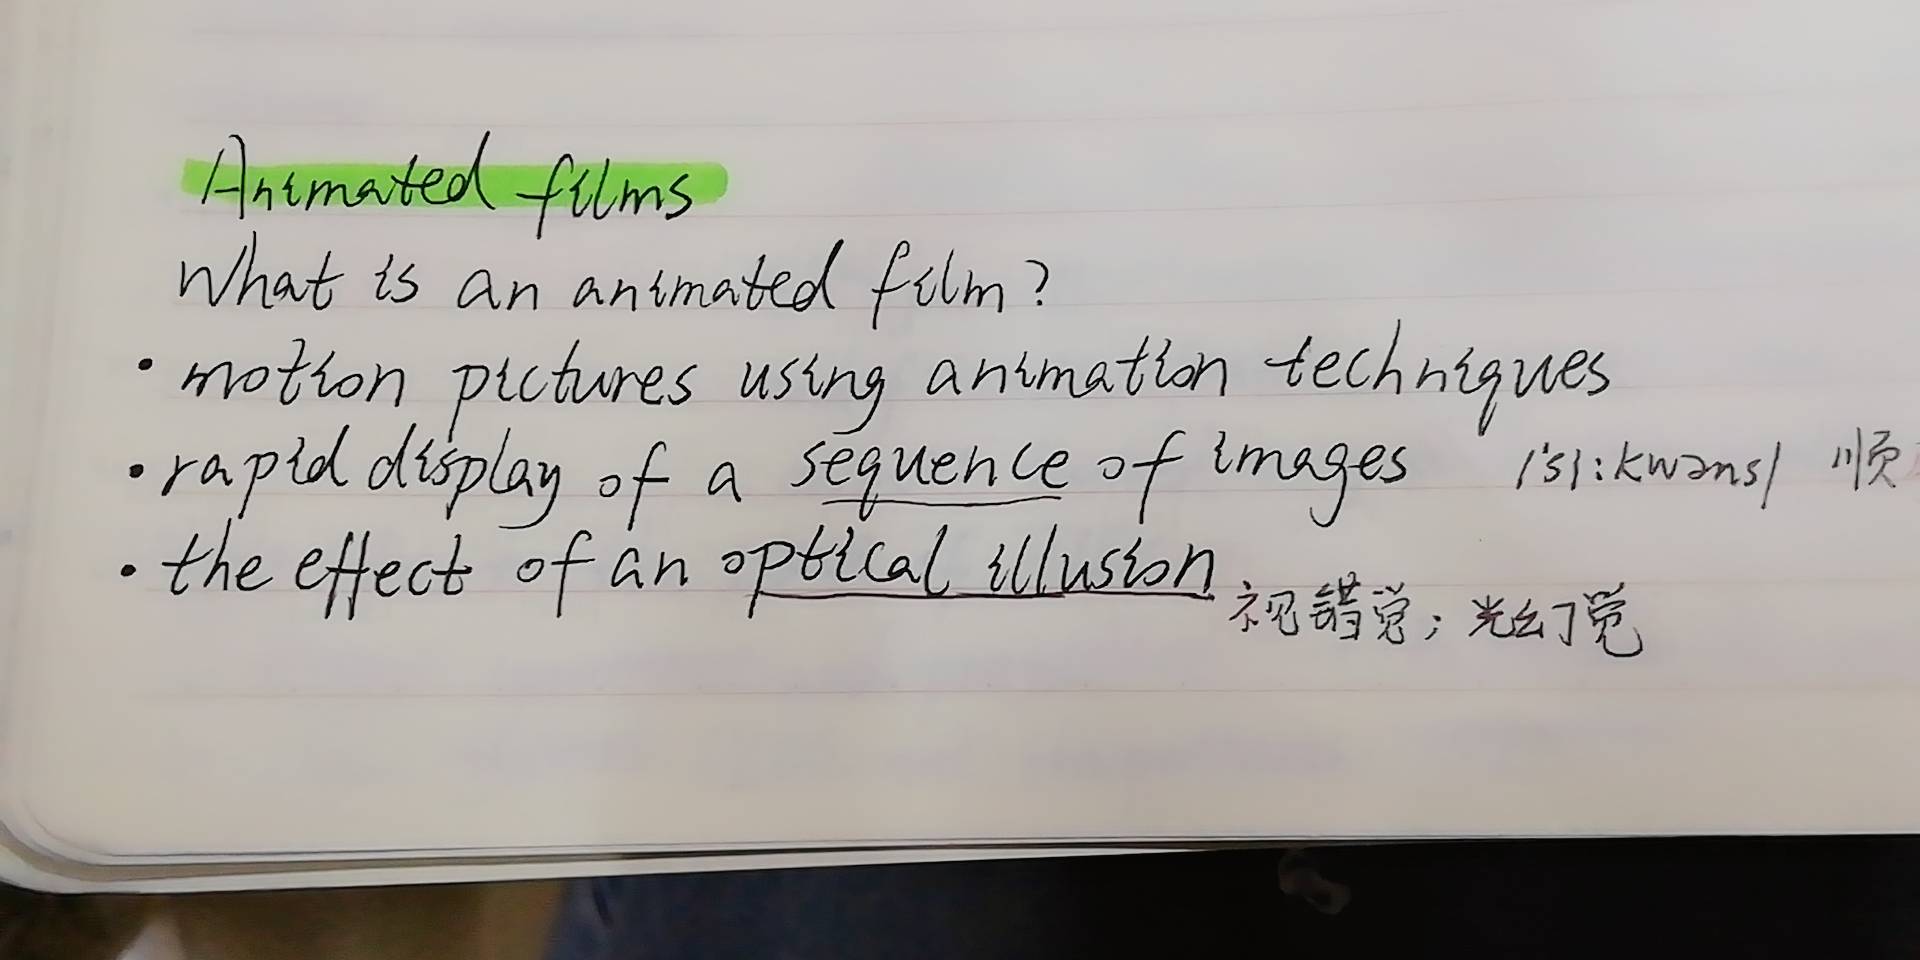 Animated films
What is an animated film?
• motion pictures using animation techniques
• rapid display of a sequence of images /'si:kwəns/ 顺
• the effect of an optical illusion 视错觉；光幻觉